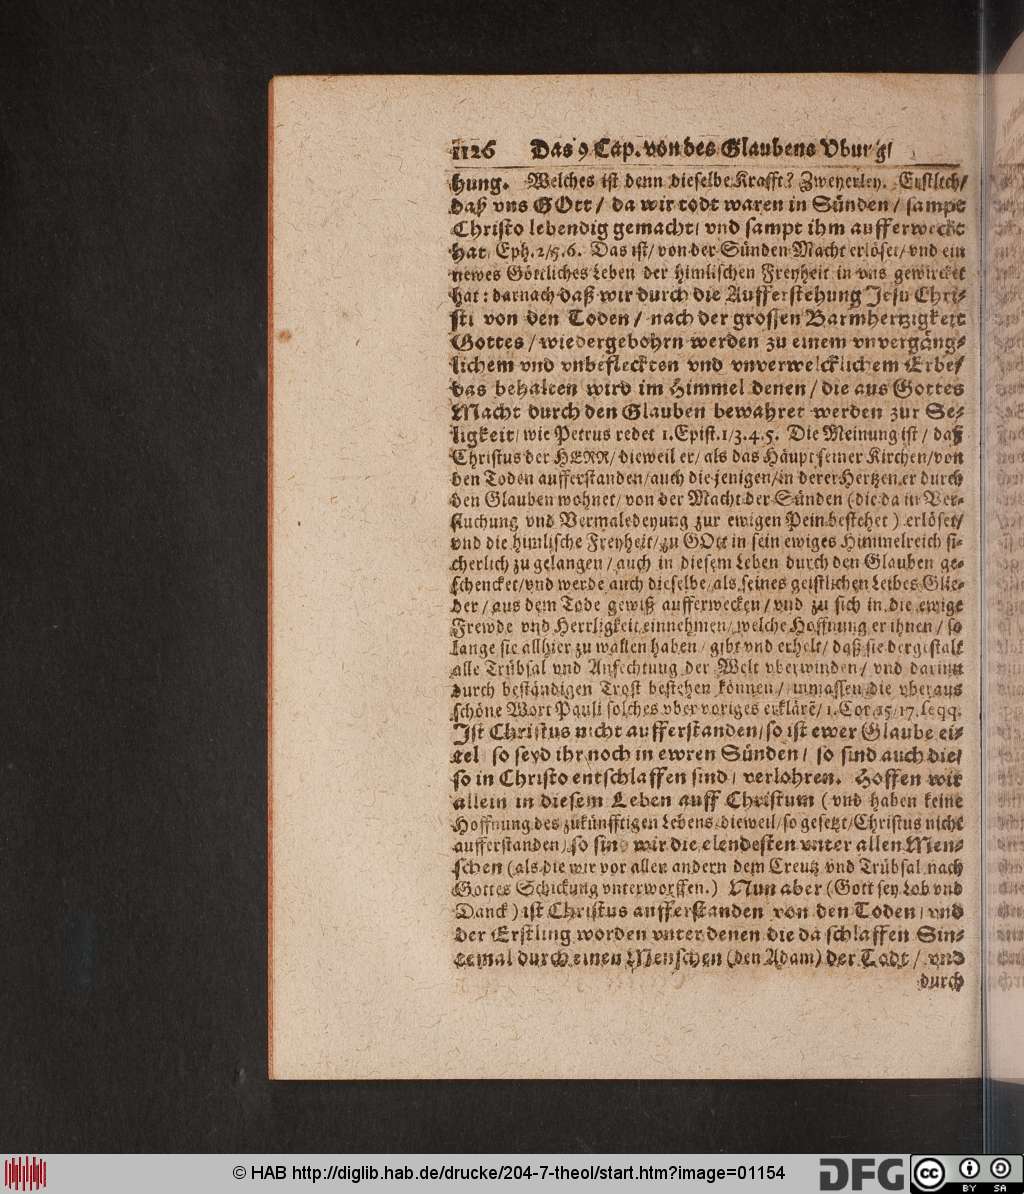 1126 Das 9 Cap. von des Glaubens Vbung
hung. Welches ist denn dieselbe Krafft? Zweyerley. Erstlich/
daß vns GOtt/ da wir todt waren in Sünden/ sampt
Christo lebendig gemacht/ vnd sampt ihm aufferweckt
hat/ Eph. 2/5.6. Das ist/ von der Sünden Macht erlöset/ vnd ein
newes Göttliches Leben der himlischen Freyheit in vns gewircket
hat: darnach daß wir durch die Aufferstehung Jesu Chri-
sti von den Toden/ nach der grossen Barmhertzigkeit
Gottes/ wiedergebohrn werden zu einem vnvergäng-
lichem vnd vnbefleckten vnd vnverwelcklichem Erbe/
das behalten wird im Himmel denen/ die aus Gottes
Macht durch den Glauben bewahret werden zur Se-
ligkeit/ wie Petrus redet 1. Epist. 1/3.4.5. Die Meinung ist/ daß
Christus der HERR/ dieweil er/ als das Häupt seiner Kirchen/ von
den Toden aufferstanden/ auch die jenigen/ in derer Hertzen er durch
den Glauben wohnet/ von der Macht der Sünden (die da in Ver-
fluchung vnd Vermaledeyung zur ewigen Pein bestehet) erlöset/
vnd die himlische Freyheit/ zu GOtt in sein ewiges Himmelreich si-
cherlich zu gelangen/ auch in diesem Leben durch den Glauben ge-
schencket/ vnd werde auch dieselbe/ als seines geistlichen Leibes Glie-
der/ aus dem Tode gewiß aufferwecken/ vnd zu sich in die ewige
Frewde vnd Herrligkeit einnehmen/ welche Hoffnung er ihnen/ so
lange sie allhier zu wallen haben/ gibt vnd erhelt/ daß sie dergestalt
alle Trübsal vnd Anfechtung der Welt vberwinden/ vnd darinn
durch beständigen Trost bestehen können/ inmassen die vberaus
schöne Wort Pauli solches vber voriges erklärē/ 1. Cor. 15/17. seqq.
Ist Christus nicht aufferstanden/ so ist ewer Glaube ei-
tel/ so seyd ihr noch in ewren Sünden/ so sind auch die/
so in Christo entschlaffen sind/ verlohren. Hoffen wir
allein in diesem Leben auff Christum (vnd haben keine
Hoffnung des zukünfftigen Lebens/ dieweil/ so gesetzt/ Christus nicht
aufferstanden) so sind wir die elendesten vnter allen Men-
schen (als die wir vor allen andern dem Creutz vnd Trübsal nach
Gottes Schickung vnterworffen.) Nun aber (Gott sey Lob vnd
Danck) ist Christus aufferstanden von den Toden/ vnd
der Erstling worden vnter denen die da schlaffen Sin-
temal durch einen Menschen (den Adam) der Todt/ vnd
durch
© HAB http://diglib.hab.de/drucke/204-7-theol/start.htm?image=01154
DFG
cc BY SA